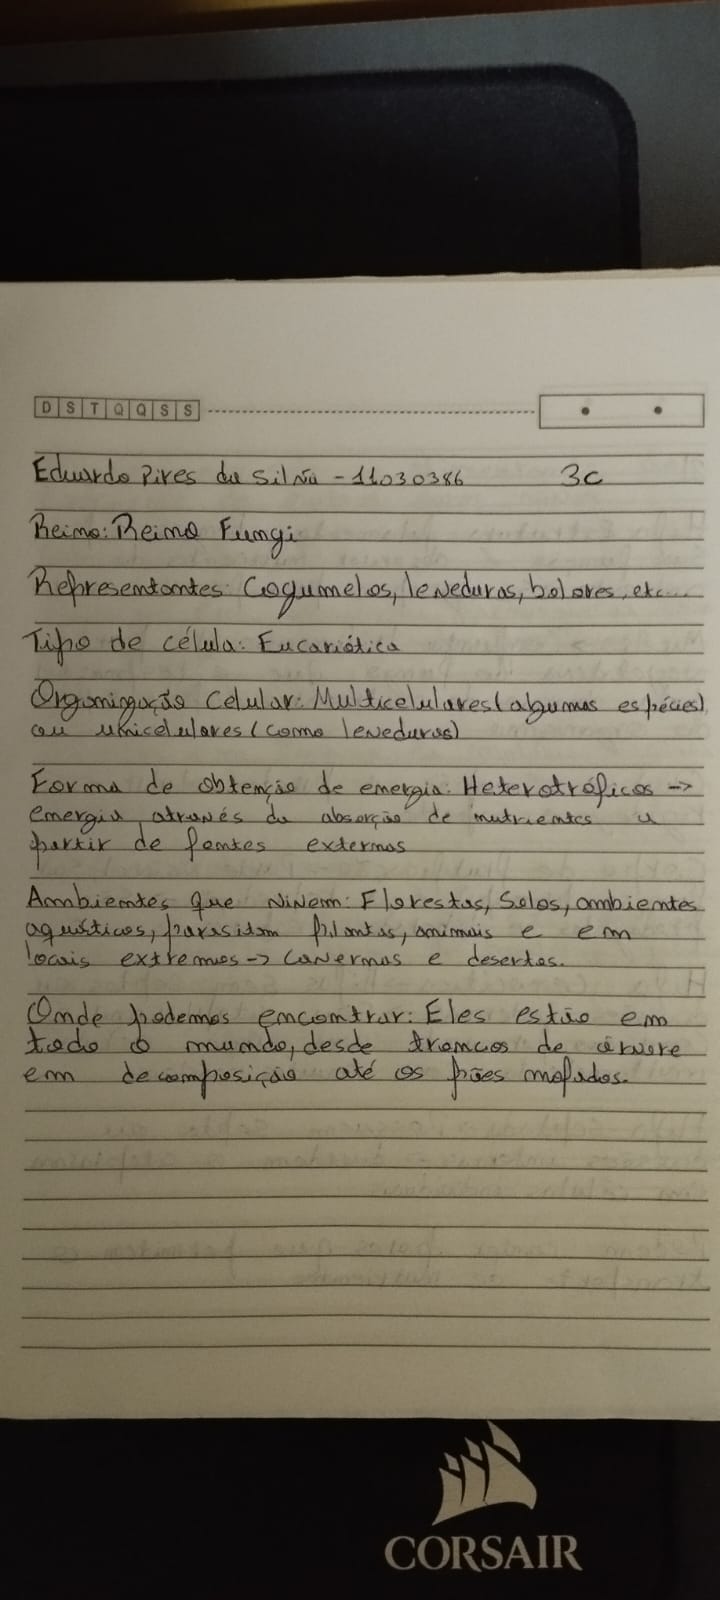 D S T Q Q S S
Eduardo Pires da Silva - 11030386 3C
Reino: Reino Fungi
Representantes: Cogumelos, leveduras, bolores, etc...
Tipo de célula: Eucariótica
Organização Celular: Multicelulares (algumas espécies)
ou unicelulares (como leveduras)
Forma de obtenção de energia: Heterotróficos ->
energia através da absorção de nutrientes a
partir de fontes externas
Ambientes que vivem: Florestas, Solos, ambientes
aquáticos, parasitam plantas, animais e em
locais extremos -> Cavernas e desertos.
Onde podemos encontrar: Eles estão em
todo o mundo, desde troncos de árvore
em decomposição até os pães mofados.
CORSAIR